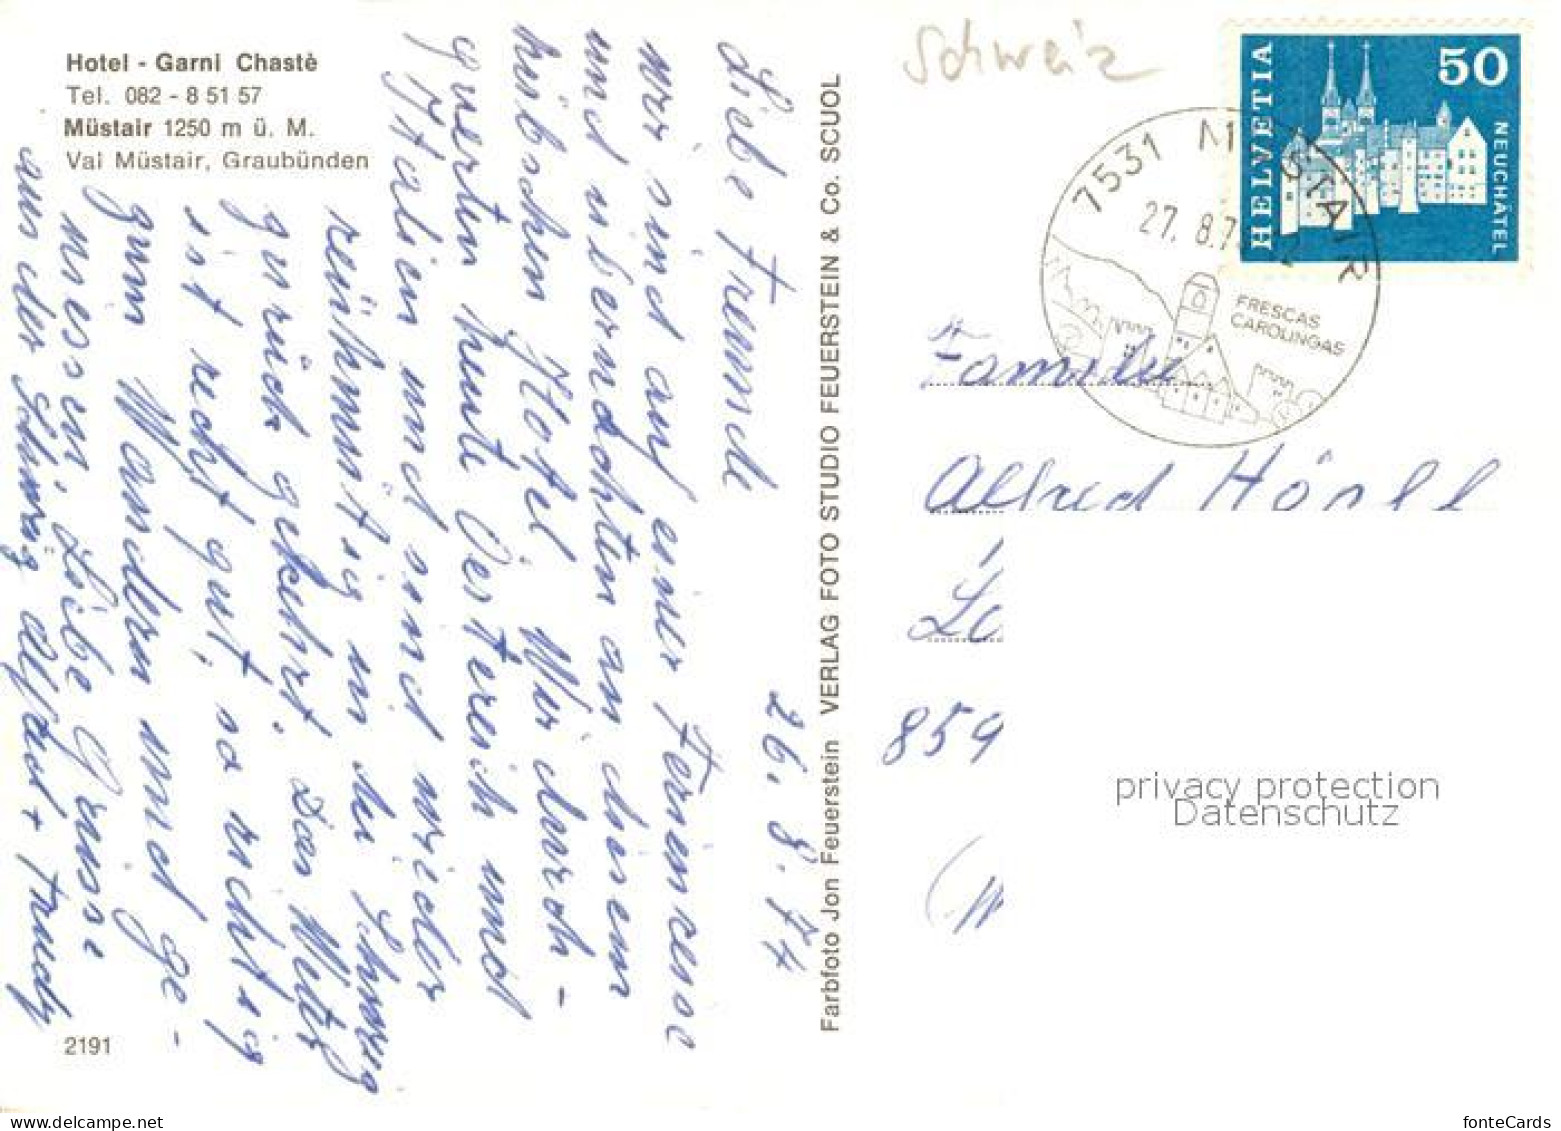 Hotel - Garni Chastè
Tel. 082 - 8 51 57
Müstair 1250 m ü. M.
Val Müstair, Graubünden
26. 8. 74
Liebe Freunde
wir sind auf einer Ferienreise
und übernachten in diesem
hübschen Hotel. Wir durch-
querten heute Oesterreich und
Italien und sind wieder
in der Schweiz
zurück gekehrt. Das Wetter
ist recht gut, so richtig
zum Wandern und ge-
niessen. Liebe Grüsse
aus der Schweiz Alfred + Trudy
2191
Farbfoto Jon Feuerstein VERLAG FOTO STUDIO FEUERSTEIN & Co. SCUOL
Schweiz
HELVETIA
50
NEUCHÂTEL
7531 MÜSTAIR
27. 8.7
FRESCAS
CAROLINGAS
Familie
Alfred
859
privacy protection
Datenschutz
fonteCards